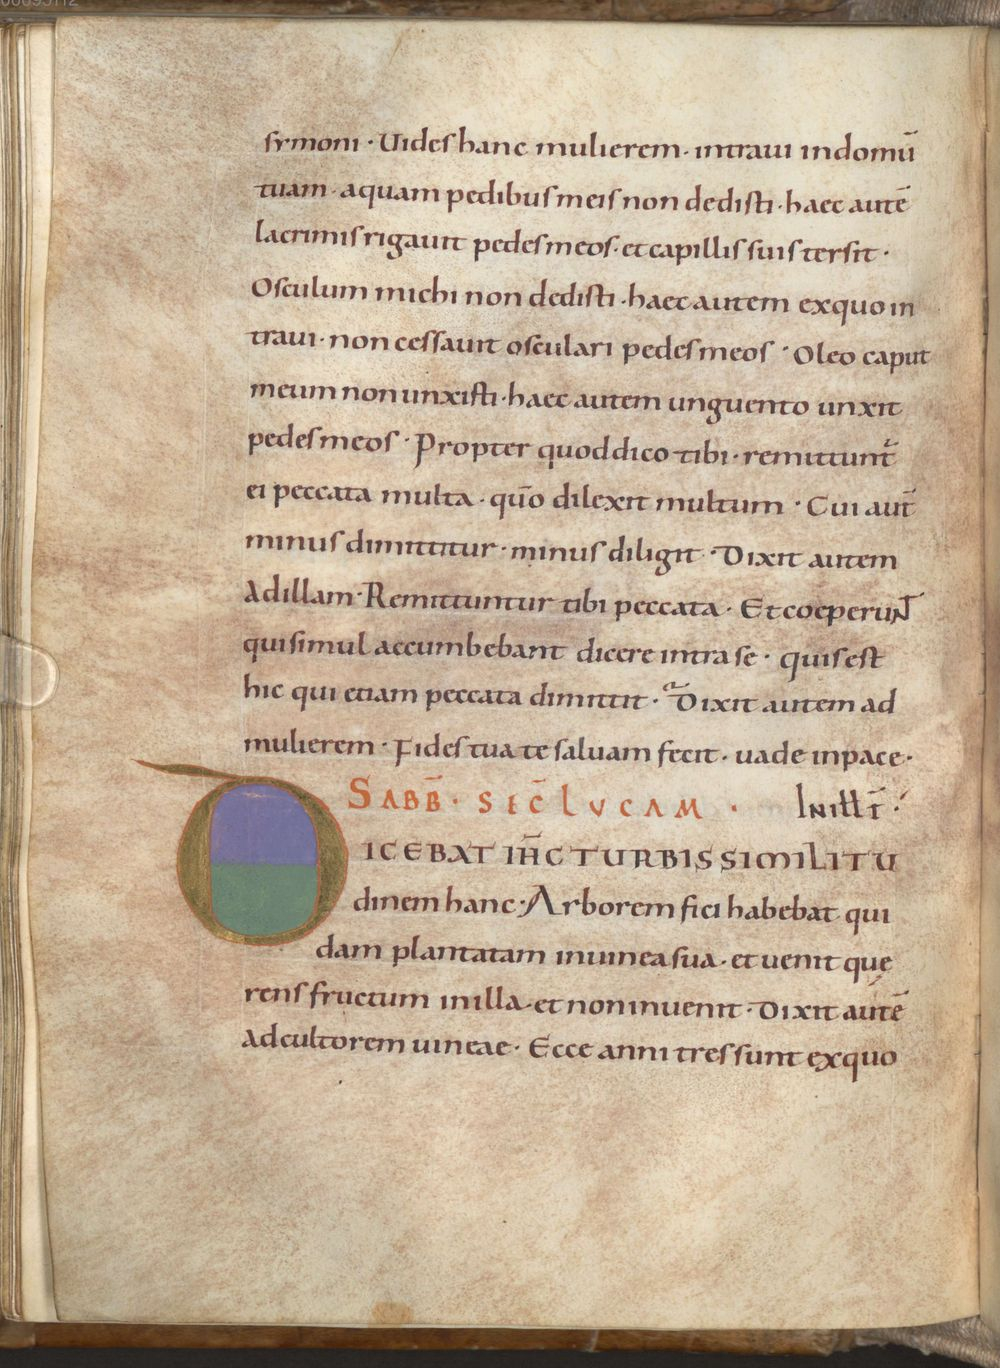 symoni · Uides hanc mulierem · intraui in domū
tuam · aquam pedibus meis non dedisti · haec autē
lacrimis rigauit pedes meos · et capillis suis tersit ·
Osculum michi non dedisti · haec autem ex quo in
traui · non cessauit osculari pedes meos · Oleo caput
meum non unxisti · haec autem unguento unxit
pedes meos · Propter quod dico tibi · remittunt̄
ei peccata multa · qūo dilexit multum · Cui aut̄
minus dimittitur · minus diligit · Dixit autem
Ad illam · Remittuntur tibi peccata · Et coeperunt
qui simul accumbebant dicere intra se · quis est
hic qui etiam peccata dimittit · Dixit autem ad
mulierem · Fides tua te saluam fecit · uade in pace ·
SABB̄ · SEC̄ LVCAM · In illt̄ ·
DICEBAT IH̄C TURBIS SIMILITU
dinem hanc · Arborem fici habebat qui
dam plantatam in uinea sua · et uenit que
rens fructum in illa · et non inuenit · Dixit autē
Ad cultorem uineae · Ecce anni tres sunt ex quo